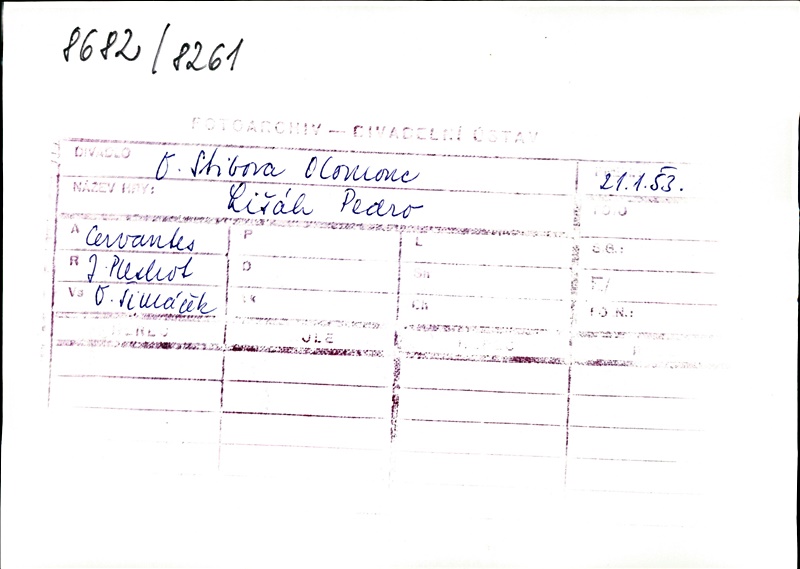 8682/8261
FOTOARCHIV — DIVADELNÍ ÚSTAV
DIVADLO O. Stibora Olomouc 21.1.53.
NÁZEV HRY: Lišák Pedro
A Cervantes P L
R J. Pleskot D
Vs O. Šimáček